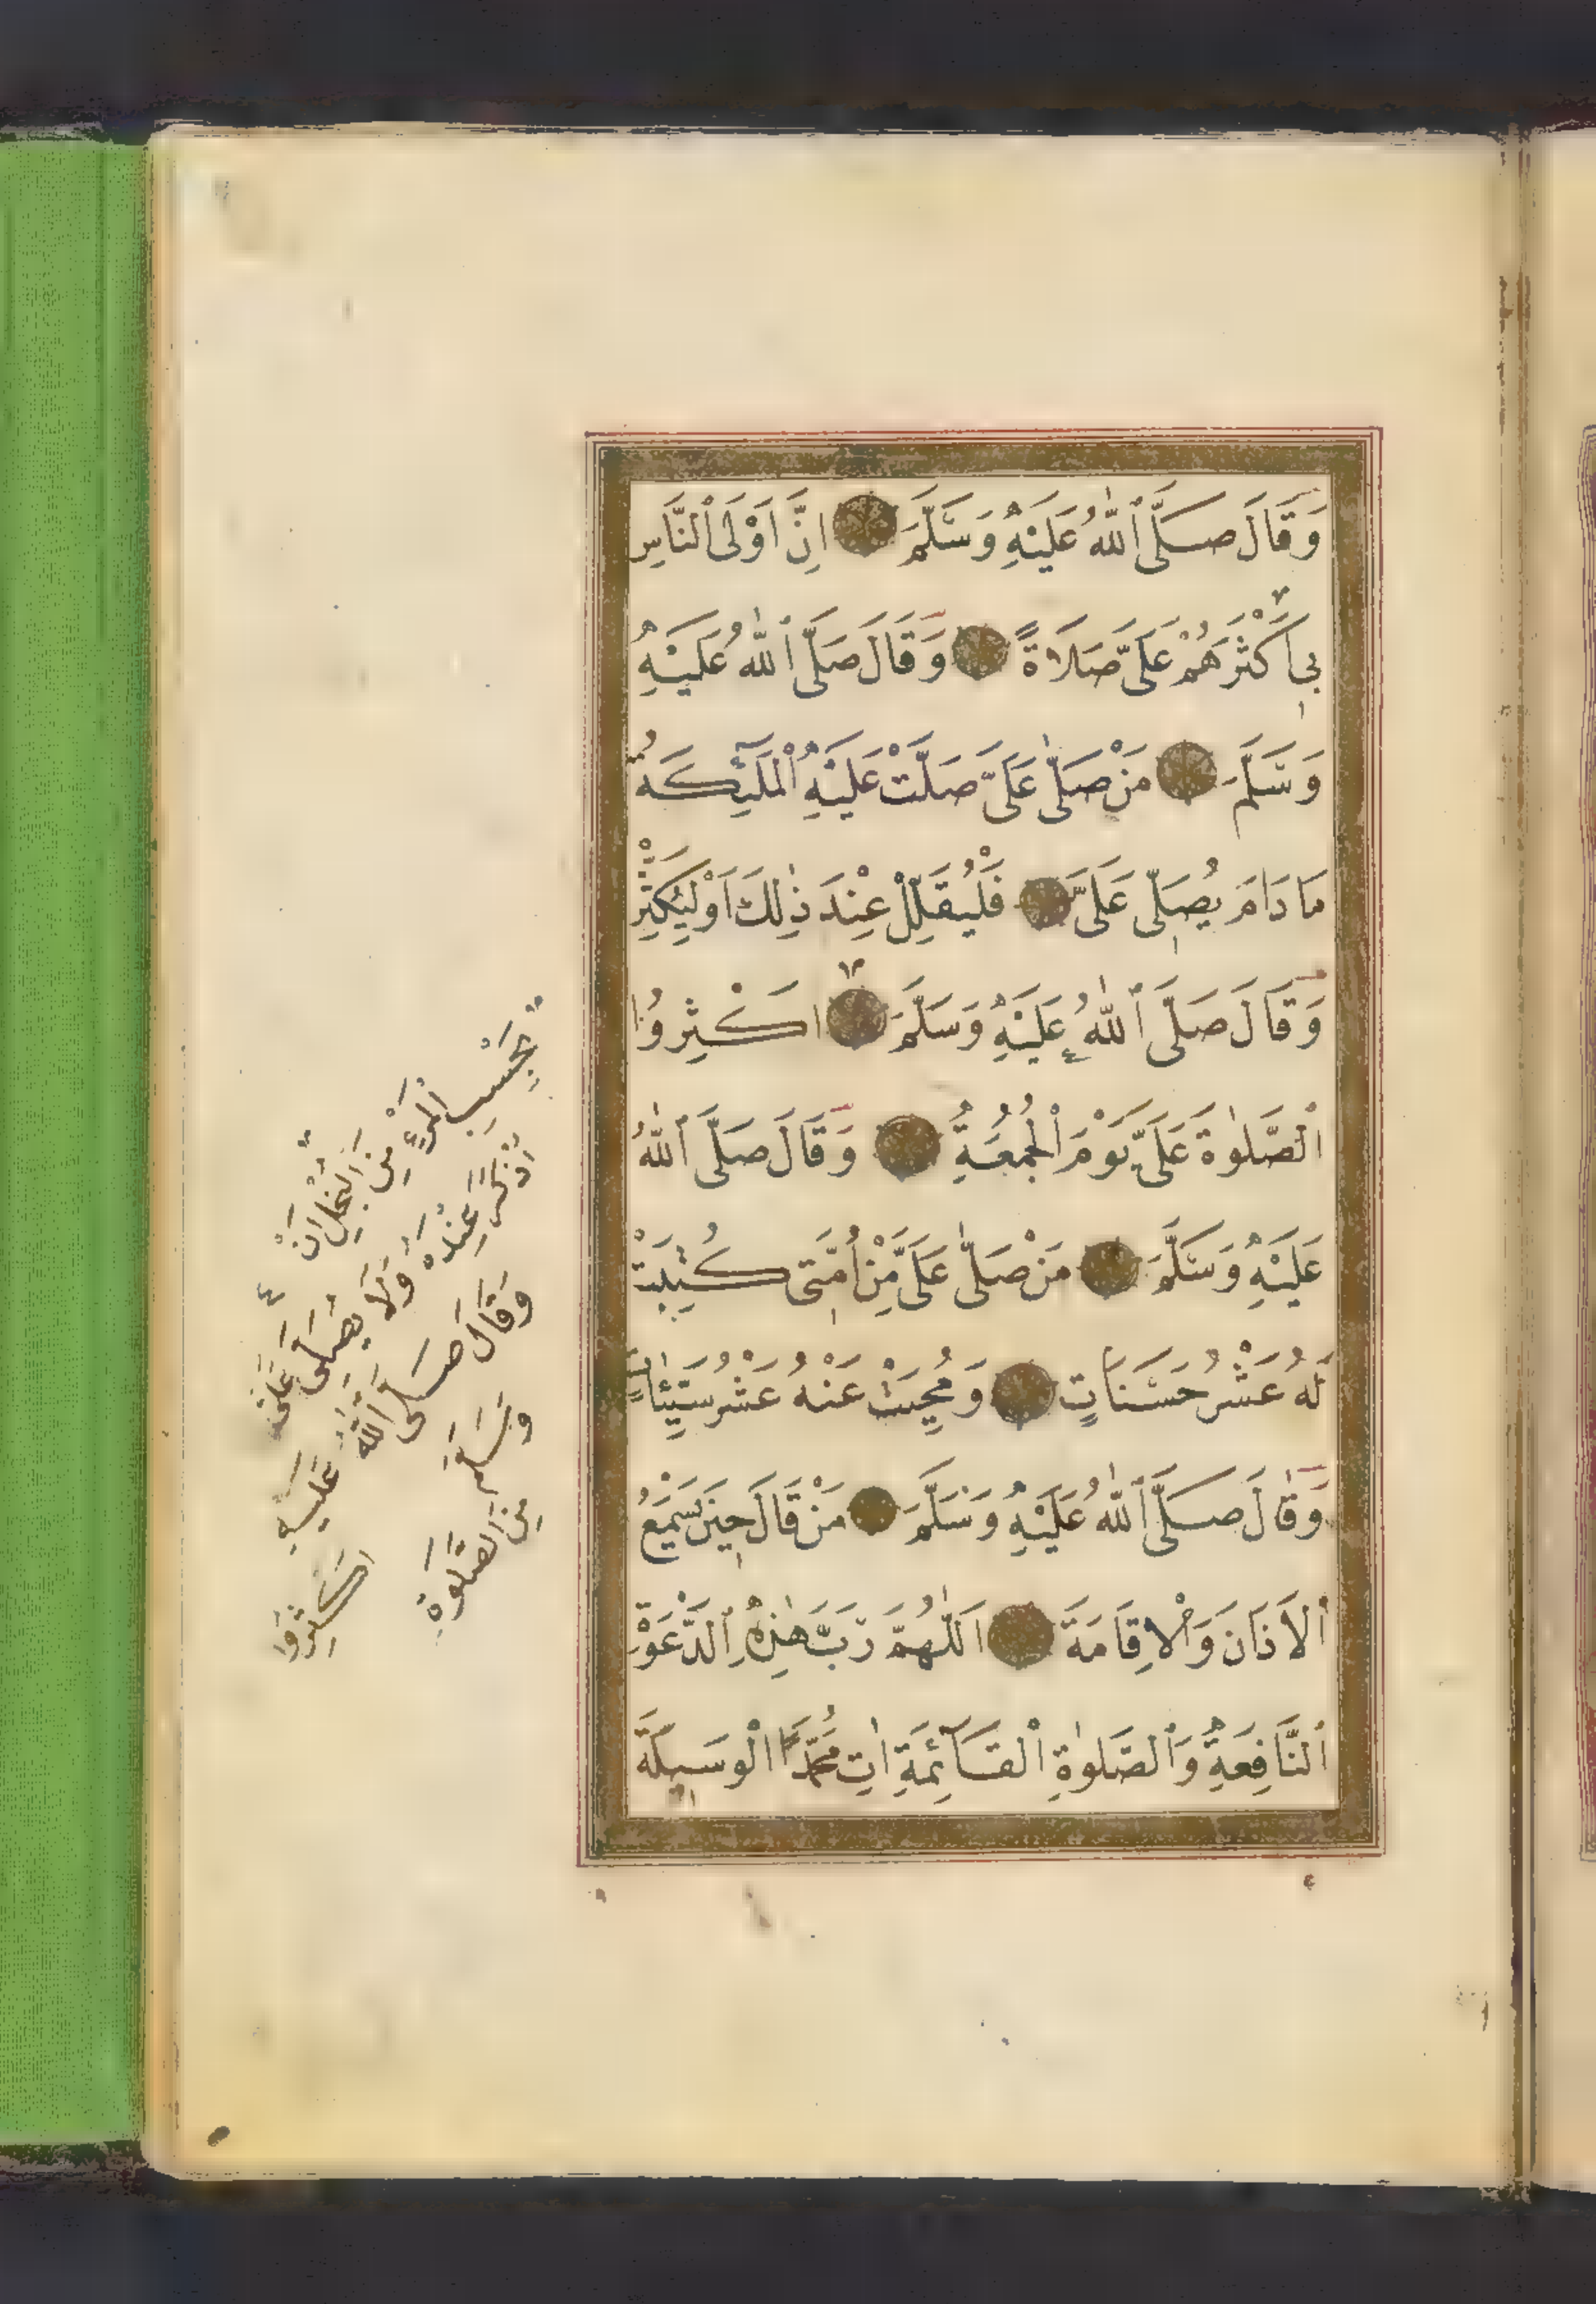 وَقَالَ صَلَّى ٱللّٰهُ عَلَيْهِ وَسَلَّمَ اِنَّ اَوْلَى ٱلنَّاسِ
بِى اَكْثَرُهُمْ عَلَىَّ صَلَاةً وَقَالَ صَلَّى ٱللّٰهُ عَلَيْهِ
وَسَلَّمَ مَنْ صَلّٰى عَلَىَّ صَلَّتْ عَلَيْهِ الْمَلٰٓئِكَةُ
مَا دَامَ يُصَلِّى عَلَىَّ فَلْيُقَلِّلْ عِنْدَ ذٰلِكَ اَوْ لِيُكْثِرْ
وَقَالَ صَلَّى ٱللّٰهُ عَلَيْهِ وَسَلَّمَ اَكْثِرُوا
الصَّلٰوةَ عَلَىَّ يَوْمَ الْجُمُعَةِ وَقَالَ صَلَّى ٱللّٰهُ
عَلَيْهِ وَسَلَّمَ مَنْ صَلّٰى عَلَىَّ مِنْ اُمَّتِى كُتِبَتْ
لَهُ عَشْرُ حَسَنَاتٍ وَمُحِيَتْ عَنْهُ عَشْرُ سَيِّئَاتٍ
وَقَالَ صَلَّى ٱللّٰهُ عَلَيْهِ وَسَلَّمَ مَنْ قَالَ حِينَ يَسْمَعُ
الْاَذَانَ وَالْاِقَامَةَ اَللّٰهُمَّ رَبَّ هٰذِهِ ٱلدَّعْوَةِ
ٱلنَّافِعَةِ وَٱلصَّلٰوةِ الْقَآئِمَةِ اٰتِ مُحَمَّدًا الْوَسِيلَةَ
بِحَسْبِ الْمَرْءِ مِنَ الْبُخْلِ اَنْ
اُذْكَرَ عِنْدَهُ وَلَا يُصَلِّى عَلَىَّ
وَقَالَ صَلَّى ٱللّٰهُ عَلَيْهِ
وَسَلَّمَ اَكْثِرُوا
مِنَ الصَّلٰوةِ